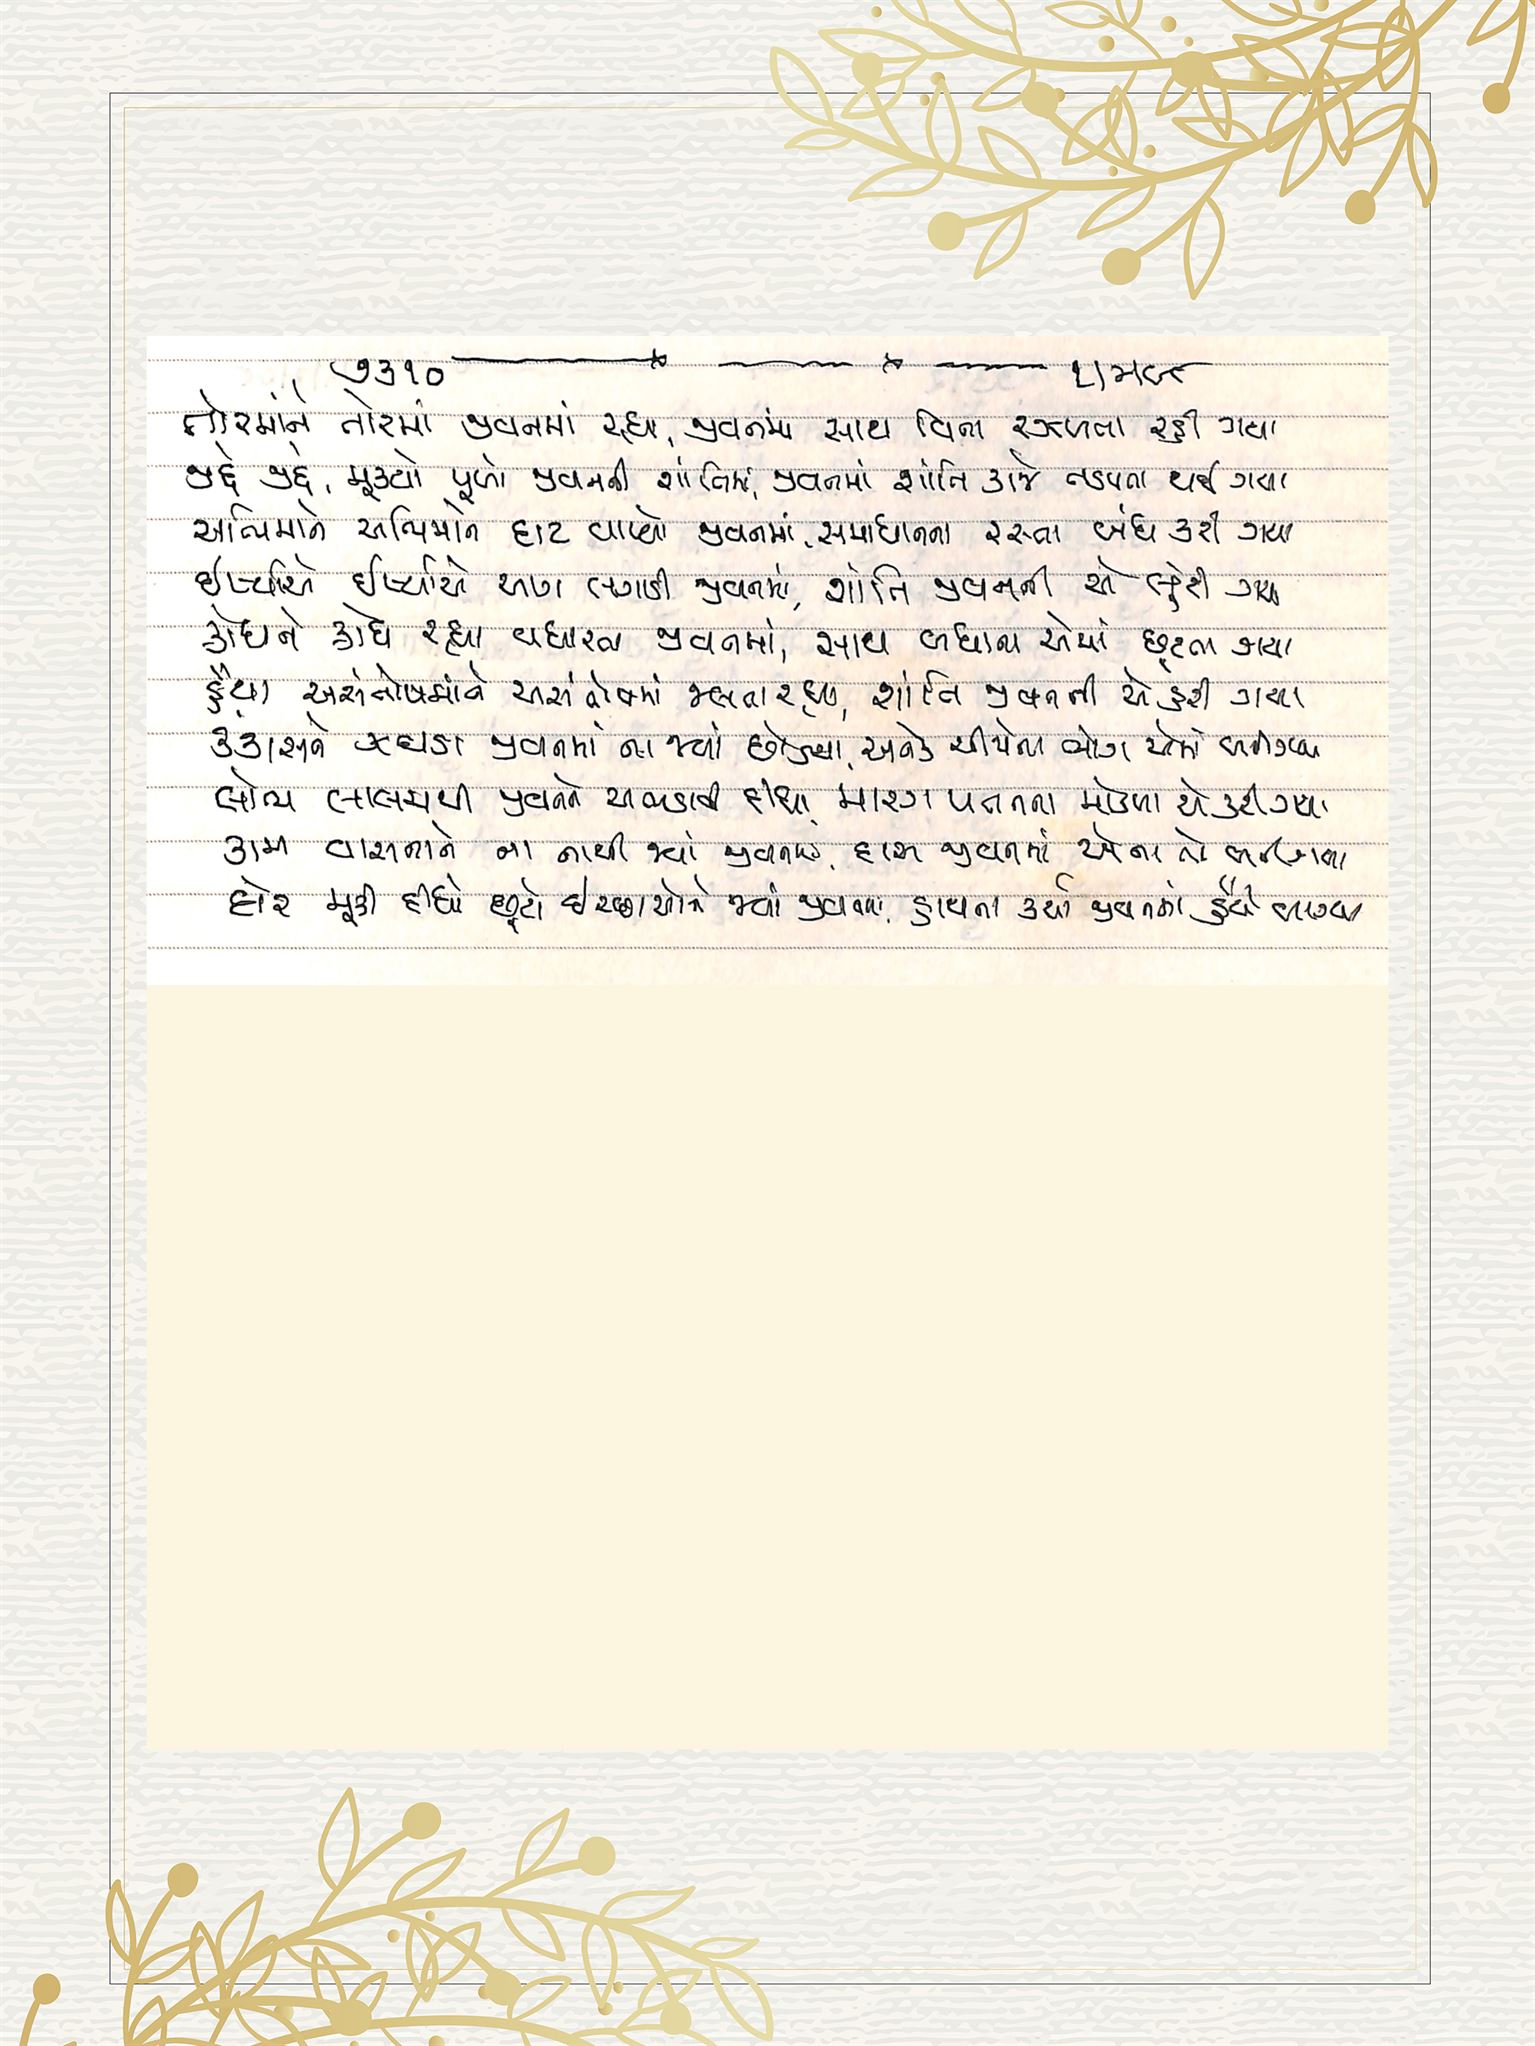 ૭૩૧૦
તોરમાંને તોરમાં જીવનમાં રહ્યા, જીવનમાં સાથ વિના રઝળતા રહી ગયા
જીદ્દે જીદ્દે, મૂક્યો પૂળો જીવનની શાંતિમાં, જીવનમાં શાંતિ કાજે તડપતા થઈ ગયા
અભિમાને અભિમાને દાટ વાળ્યો જીવનમાં, સમાધાનના રસ્તા બંધ કરી ગયા
ઈર્ષ્યાએ ઈર્ષ્યાએ આગ લગાડી જીવનમાં, શાંતિ જીવનની એ લૂંટી ગયા
ક્રોધને ક્રોધે રહ્યા વધારતા જીવનમાં, સાથ બધાના એમાં છૂટતા ગયા
હૈયા અસંતોષમાંને અસંતોષમાં જલતા રહ્યા, શાંતિ જીવનની એ હરી ગયા
કંકાસને ઝઘડા જીવનમાં ના જ્યાં છોડયા, અનેક ચીજોના ભોગ એમાં બની ગયા
લોભ લાલચથી જીવનને અભડાવી દીધા, મારગ પતનના મોકળા એ કરી ગયા
કામ વાસનાને ના નાથી જ્યાં જીવનમાં, દાસ જીવનમાં એના તો બની ગયા
દોર મૂકી દીધો છૂટો ઇચ્છાઓને જ્યાં જીવનમાં, હાથના કર્યા જીવનમાં હૈયે વાગ્યા